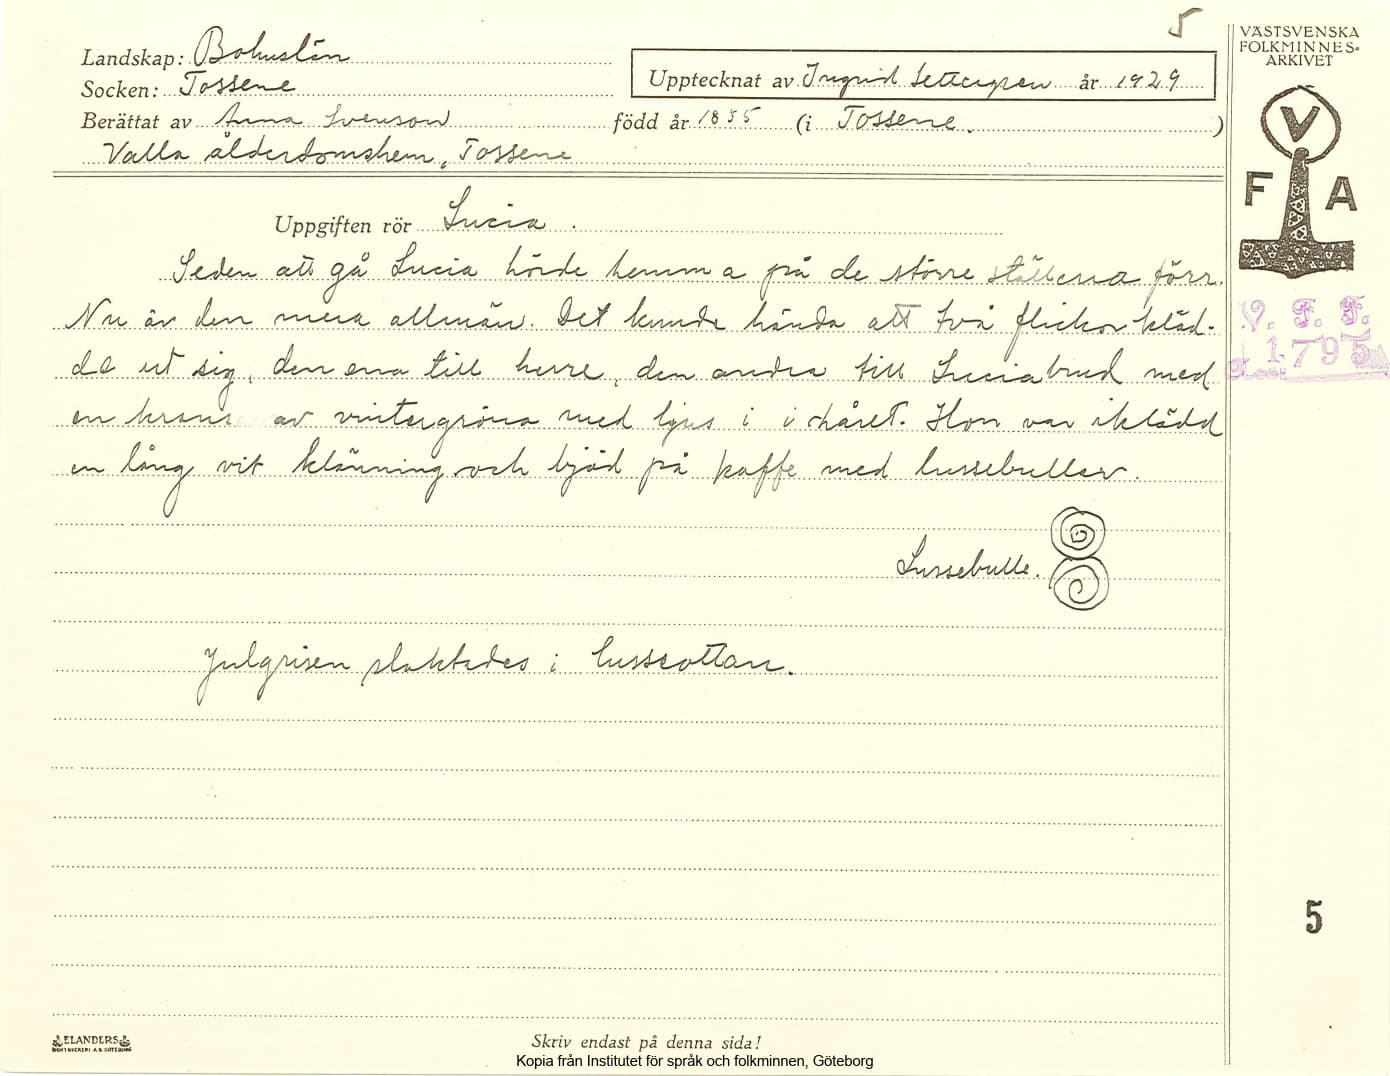 5
VÄSTSVENSKA
FOLKMINNES-
ARKIVET
Landskap: Bohuslän
Socken: Tossene
Upptecknat av Ingrid Settergren år 1929
Berättat av Anna Svenson född år 1855 (i Tossene. )
Valla ålderdomshem, Tossene
V
F A
Uppgiften rör Lucia.
Seden att gå Lucia hörde hemma på de större ställena förr.
Nu är den mera allmän. Det kunde hända att två flickor kläd-
de ut sig, den ena till herre, den andra till Luciabrud med
en krans av vintergröna med ljus i i håret. Hon var iklädd
en lång vit klänning och bjöd på kaffe med lussebullar.
V. F. F.
1795
Acc:
Lussebulle.
Julgrisen slaktades i lusseottan.
5
ELANDERS
BOKTRYCKERI A.B. GÖTEBORG
Skriv endast på denna sida!
Kopia från Institutet för språk och folkminnen, Göteborg